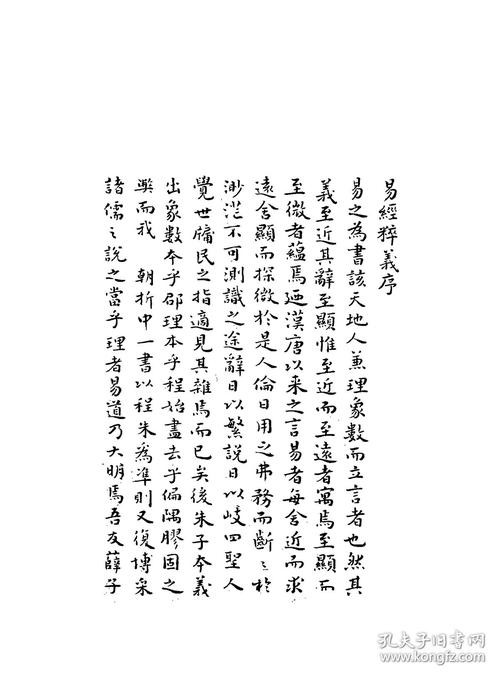 易經粹義序
易之為書該天地人兼理象數而立言者也然其
義至近其辭至顯惟至近而至遠者寓焉至顯而
至微者蘊焉迺漢唐以来之言易者每舍近而求
遠舍顯而探微於是人倫日用之弗務而斷〻於
渺茫不可測識之途辭日以繁說日以岐四聖人
覺世牖民之指適見其雜焉而已矣後朱子本義
出象數本乎邵理本乎程始盡去乎偏隅膠固之
獘而我 朝折中一書以程朱為準則又復博采
諸儒〻說之當乎理者易道乃大明焉吾友薛子
孔夫子旧书网
www.kongfz.com